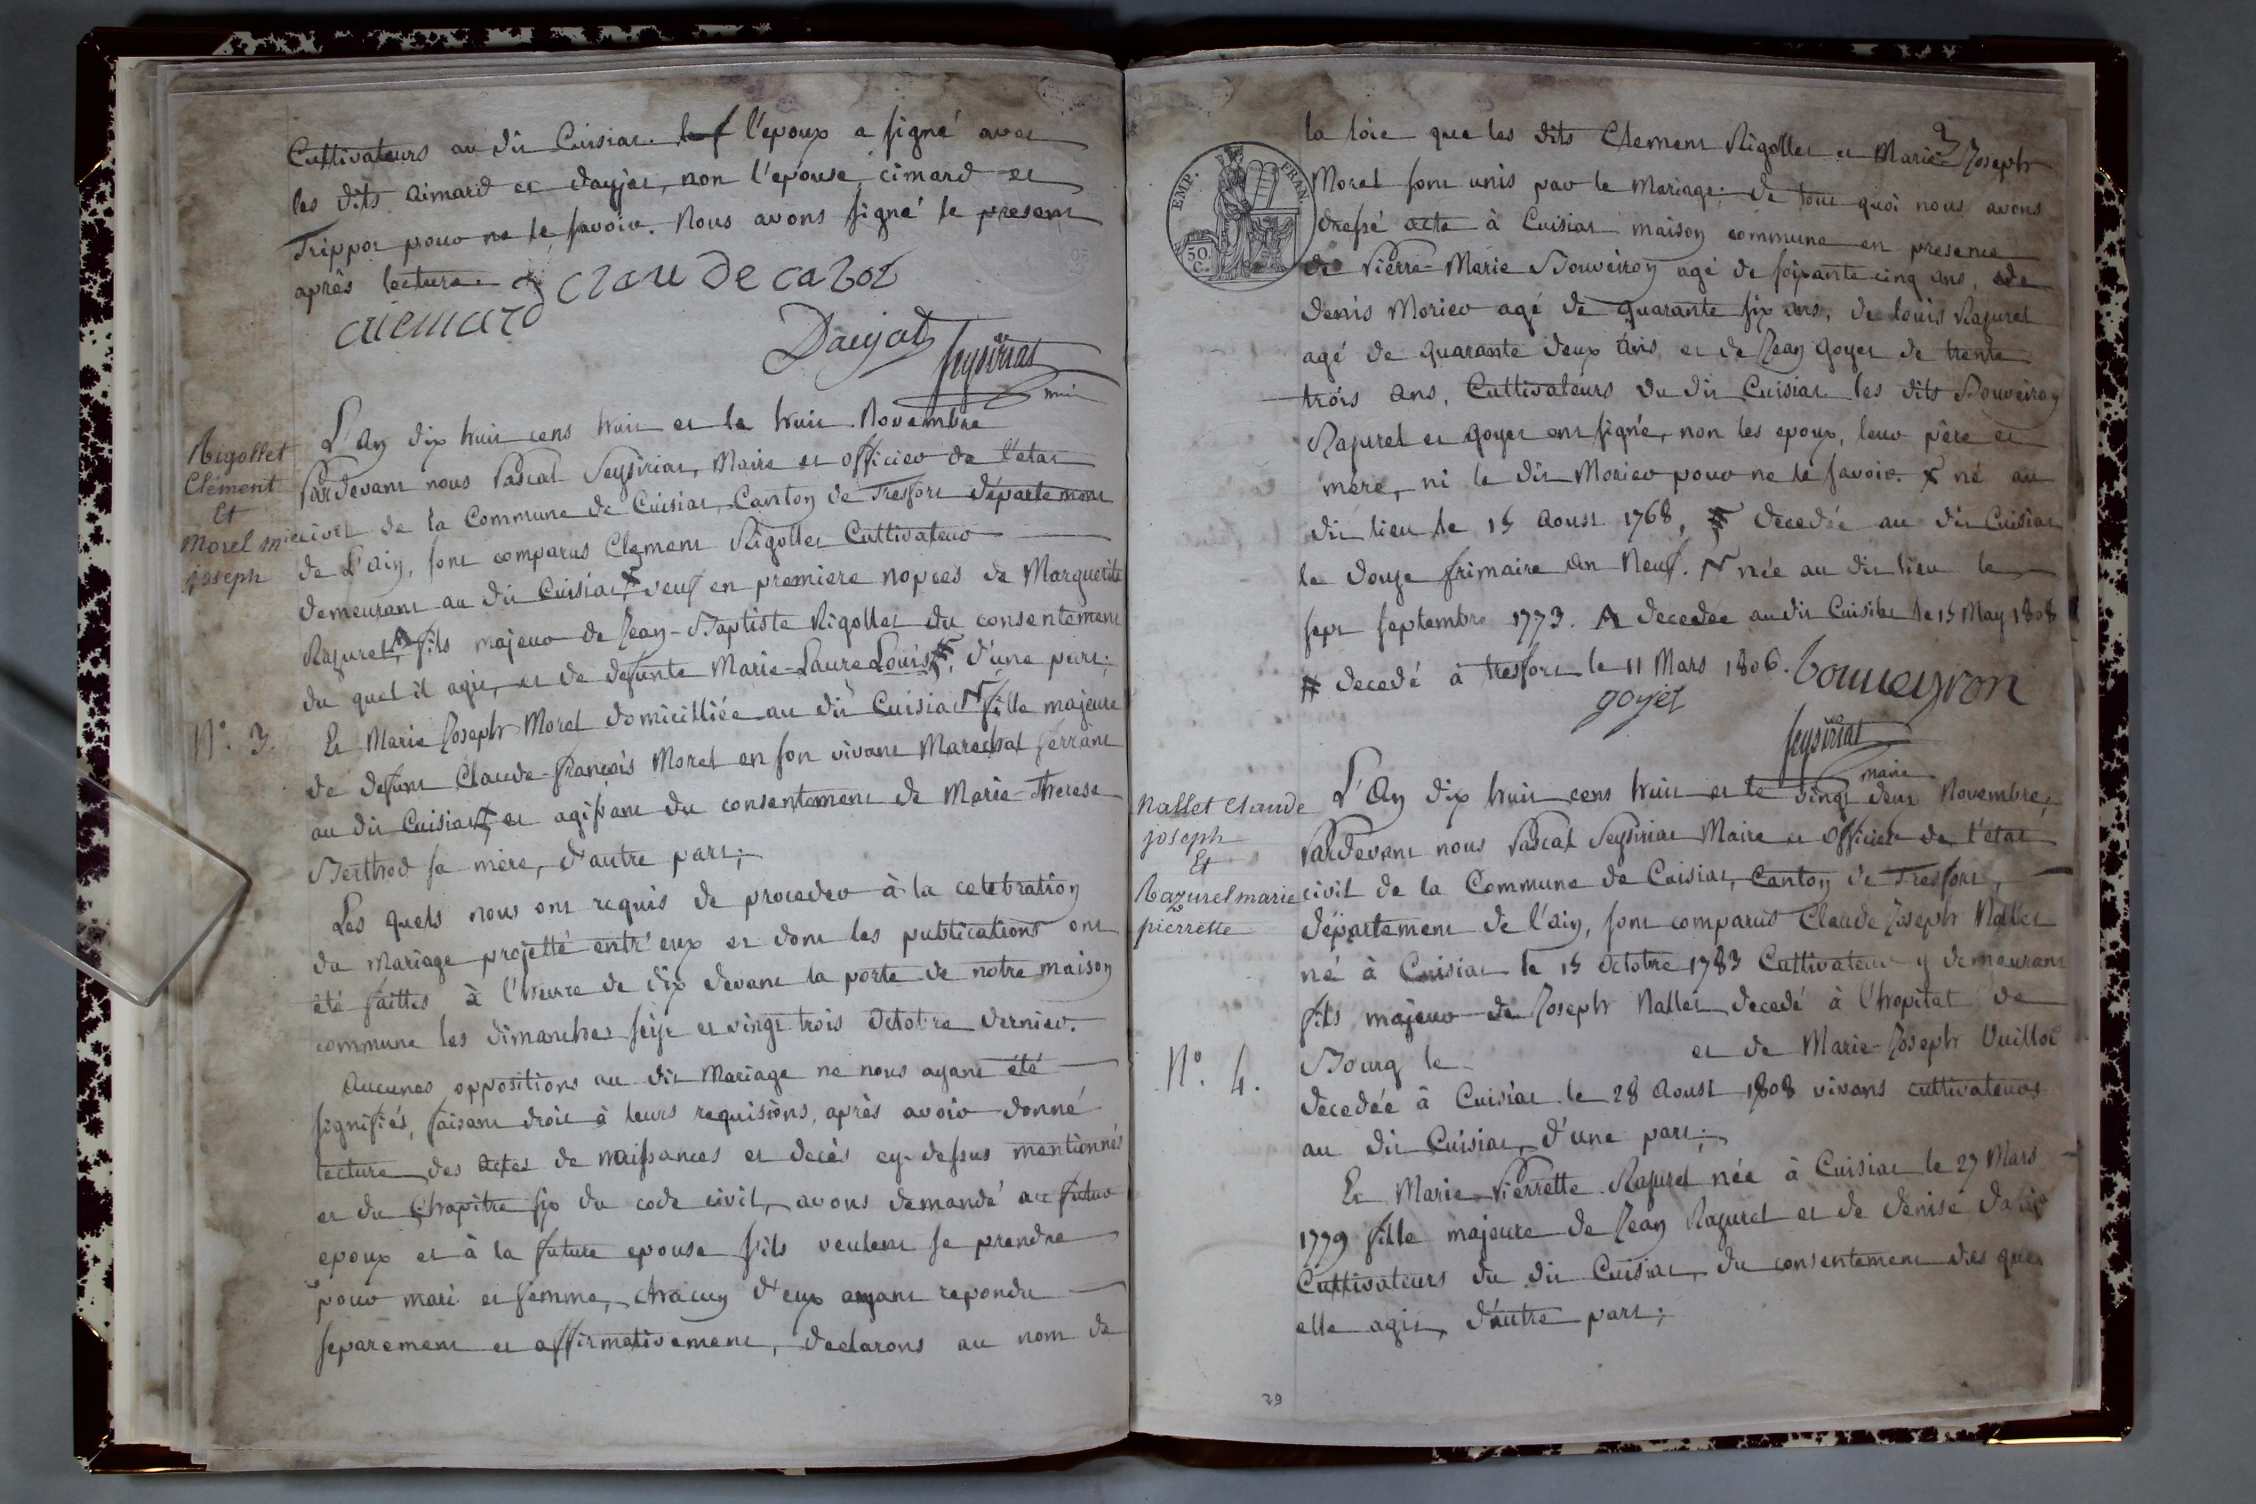 Cultivateurs au dit Cuisiat. l'epoux a signé avec
les dits Aimard et dayjat, non l'epouse cimard et
Trippoz pour ne le savoir. Nous avons signé le present
après lecture.
claudecabot
Daujat
Seysiriat
maire
Rigollet
Clément
Et
Morel marie
joseph
N.º 3.
L'an dix huit cens huit et le huit Novembre
Pardevant nous Pascal Seysiriat, Maire et officier de l'etat
civil de la Commune de Cuisiat, Canton de Tresfort département
de L'ain, sont comparus Clement Rigollet Cultivateur
demeurant au dit Cuisiat, veuf en premiere nopces de Marguerite
Razurel, fils majeur de Jean-Baptiste Rigollet du consentement
du quel il agit, et de defunte Marie-Laure Louis, d'une part;
Et Marie Joseph Morel domicilliée au dit Cuisiat fille majeure
de defunt Claude-françois Morel en son vivant Marechal ferrant
au dit Cuisiat et agissant du consentement de Marie-Therese
Berthod sa mère, d'autre part;
Les quels nous ont requis de proceder à la celebration
du mariage projetté entr'eux et dont les publications ont
été faittes à l'heure de dix devant la porte de notre maison
commune les dimanches seize et vingt trois Octobre dernier.
Aucunes oppositions au dit Mariage ne nous ayant été
signifiés, faisant droit à leurs requisions, après avoir donné
lecture des actes de naissances et decès cy-dessus mentionnés
et du Chapitre six du code civil, avons demandé au futur
epoux et à la future epouse s'ils veulent se prendre
pour mari et femme, chacun d'eux ayant repondu
separement et affirmativement, declarons au nom de
la loie que les dits Clement Rigollet et Marie Joseph
Morel sont unis par le Mariage; de tout quoi nous avons
EMP. FRAN.
50. C.
dressé acte à Cuisiat maison commune en presence
de Pierre-Marie Bouveiron agé de soixante cinq ans, de
denis Morier agé de quarante six ans, de louis Razurel
agé de quarante deux ans et de Jean Goyet de trente
trois ans, Cultivateurs du dit Cuisiat les dits Bouveiron
Razurel et Goyet ont signé, non les epoux, leur père et
mère, ni le dit Morier pour ne le savoir. X né au
dit lieu le 15 Aoust 1768, decedée au dit Cuisiat
le douze frimaire an Neuf. N née au dit lieu le
sept septembre 1773. A decedée au dit Cuisiat le 15 May 1808
# decedé à Tresfort le 11 Mars 1806. bouueyron
goyet
Seysiriat
maire
Nallet Claude
joseph
Et
Razurel marie
pierrette
N.º 4.
L'An dix huit cens huit et le vingt deux Novembre,
Pardevant nous Pascal Seysiriat Maire et Officier de l'état
civil de la Commune de Cuisiat, Canton de Tresfort,
département de l'ain, sont comparus Claude Joseph Nallet
né à Cuisiat le 15 Octobre 1783 Cultivateur y demeurant
fils majeur de Joseph Nallet decedé à l'hopital de
Bourg le et de Marie-Joseph Vuillod
decedée à Cuisiat le 28 Aoust 1808 vivans cultivateurs
au dit Cuisiat, d'une part;
Et Marie-Pierrette Razurel née à Cuisiat le 27 Mars
1779 fille majeure de Jean Razurel et de denise
Cultivateurs du dit Cuisiat, du consentement des quels
elle agit, d'autre part;
29